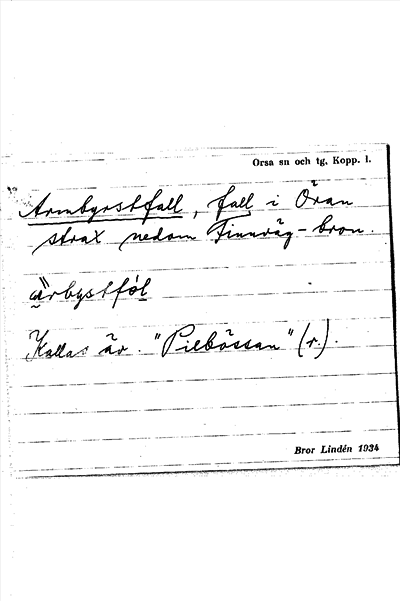 Orsa sn och tg, Kopp. l.
Armbyrstfall, fall i Öran
strax nedom Finnväg-bron.
ärbystföl
Kallas är. "Pilbössan" (r.).
Bror Lindén 1934